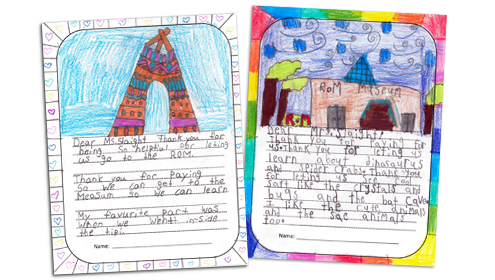 Dear Ms. Slaight Thank you for
being so helpful for leting
us go to the ROM.
Thank you for Paying
So we can get to the
MeaSum So we can learn
My favorite part was
when we wehtt in-side
the tipi.
Name:
ROM MUSEUM
ROM
Dear Mrs. Slaight
thank you for Paying for
us. Thank you for leting us
learn about dinosaurus
and spider crabs. Thank you
for leting us see cool
Saft like the crystals and
bugs and the bat cave
I like the cute animals
and the sae animals
too.
Name: